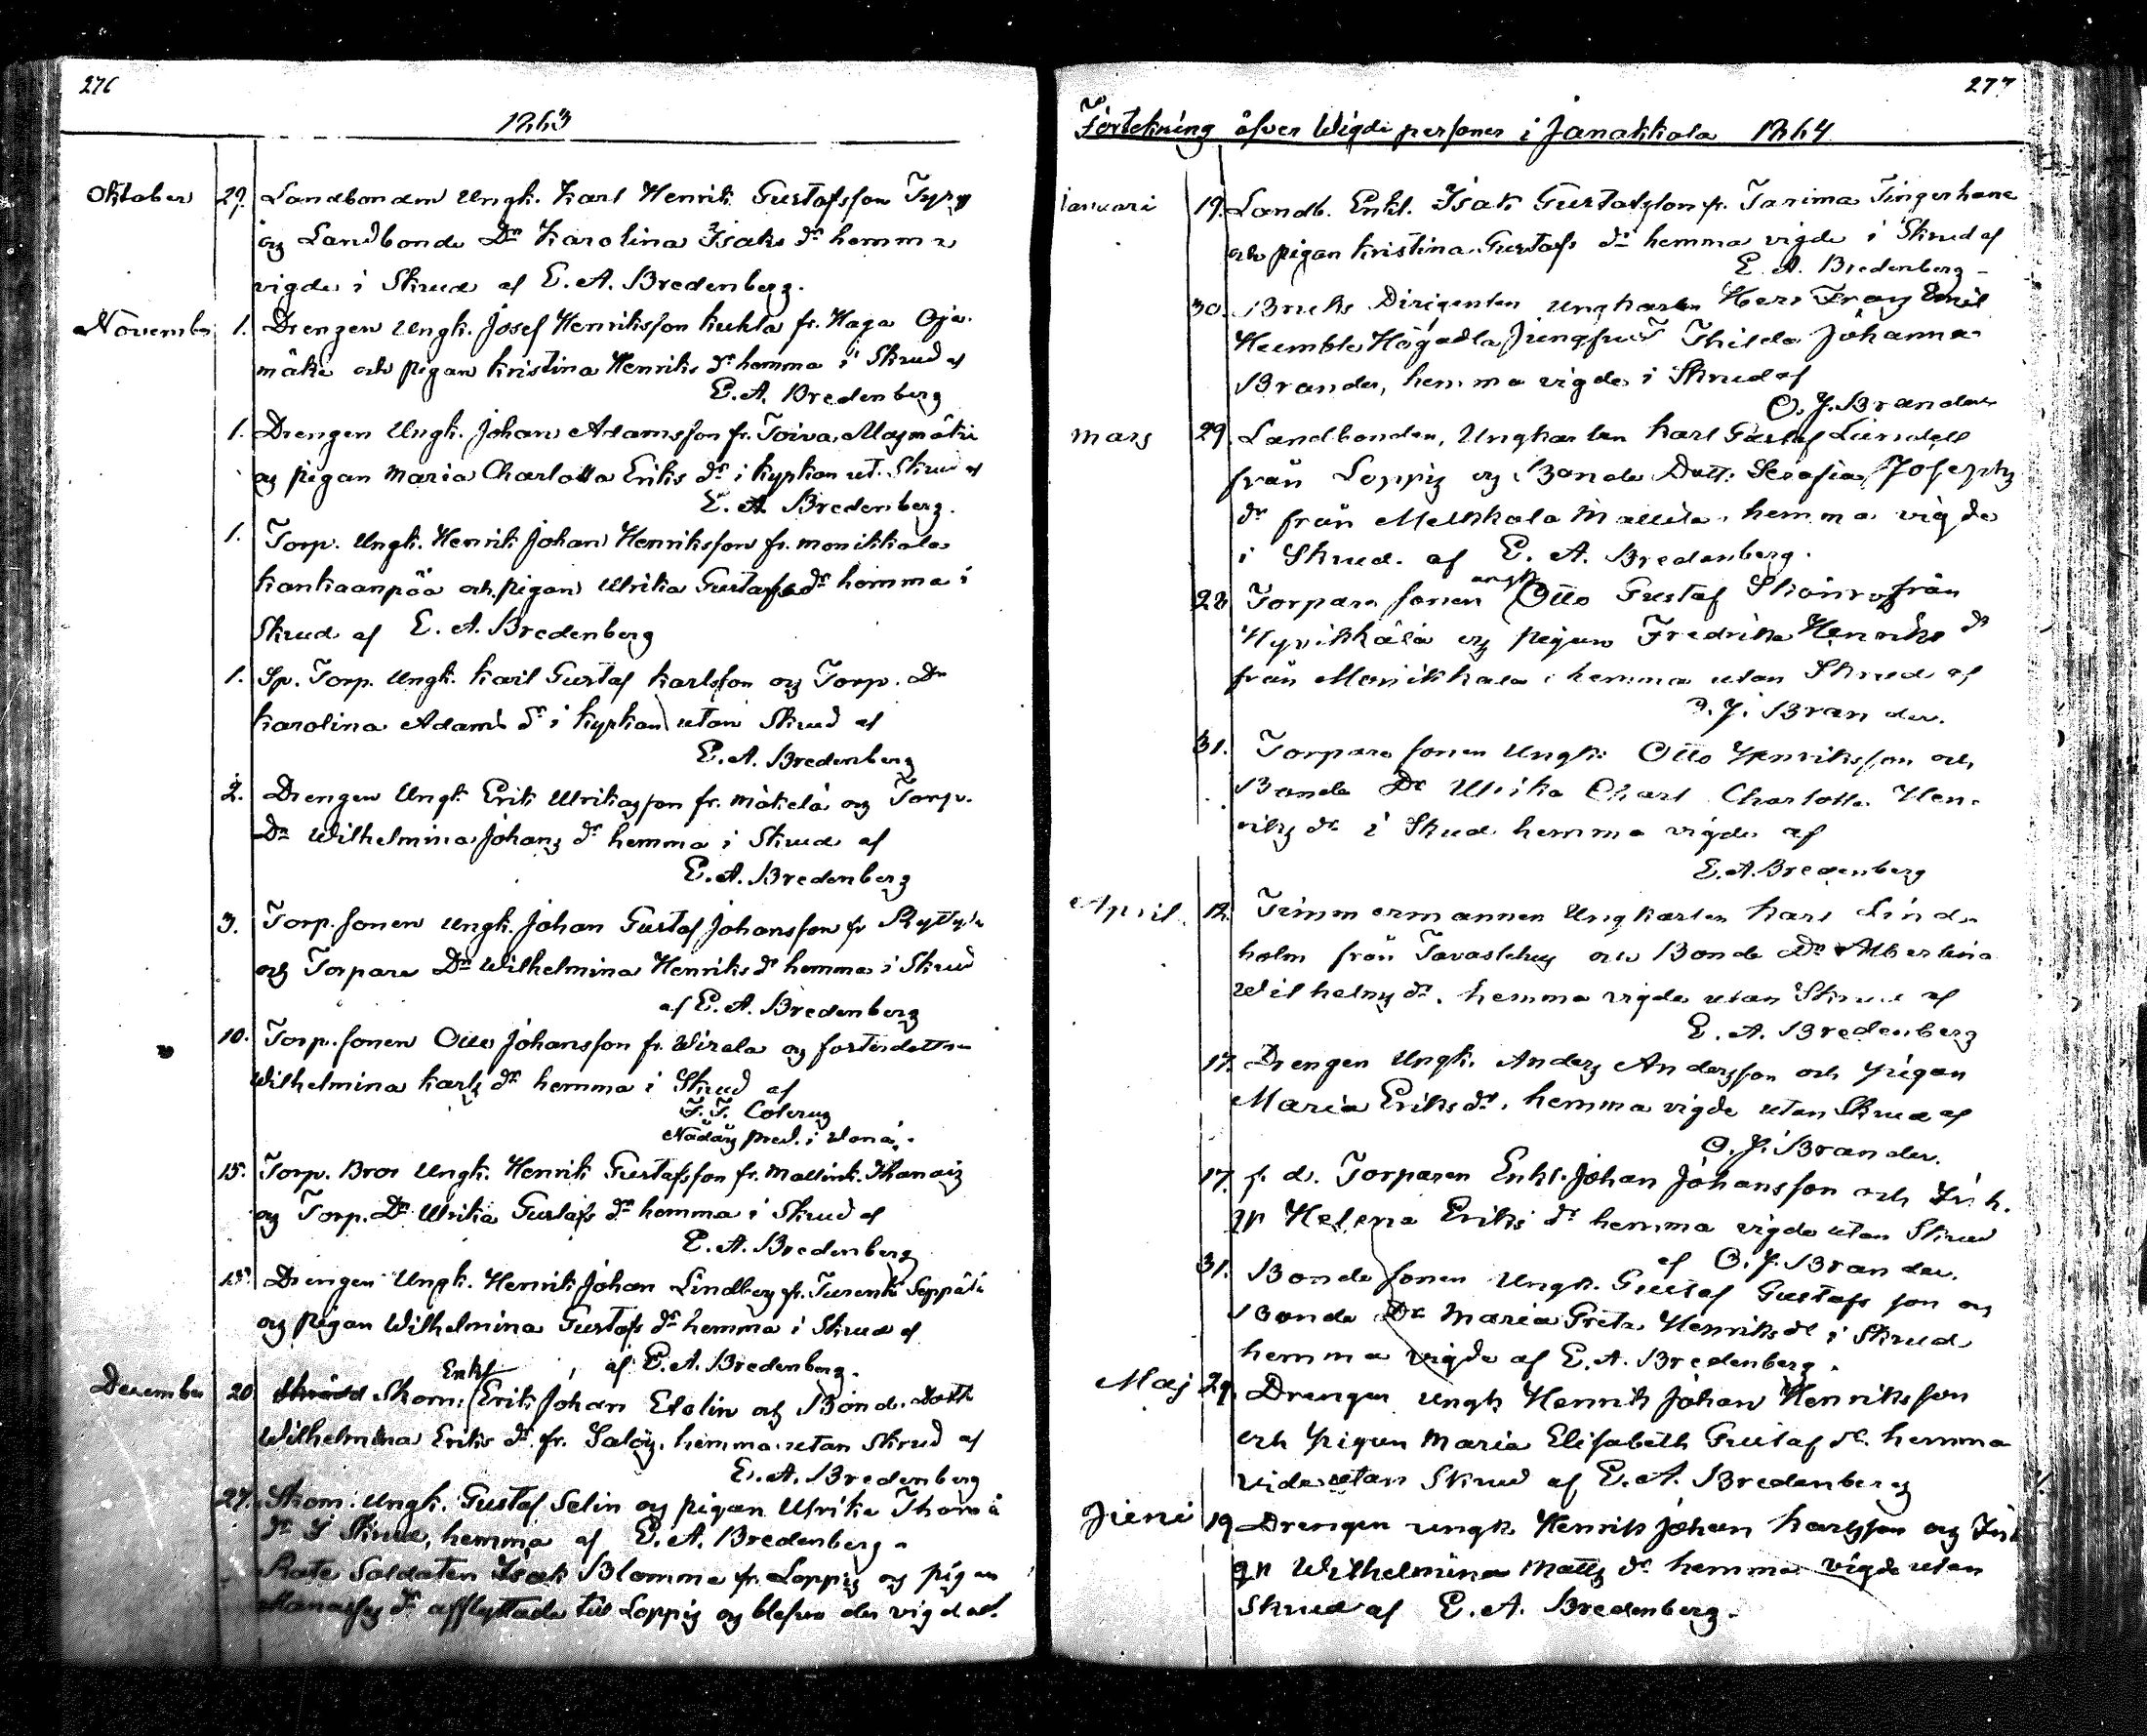 276
1863
Oktober 29. Landbonden Ungk. Karl Henrik Gustafsson
og Landbonde Dn Karolina Isaks dr hemma
vigde i Skrud af E. A. Bredenberg.
November 1. Drengen Ungk. Josef Henriksson Kukla fr. Haga Oja-
mäki och pigan Kristina Henriks dr hemma i Skrud af
E. A. Bredenberg
1. Drengen Ungk. Johan Adamsson fr. Toiva
og pigan Maria Charlotta Eriks dr i kyrkan ut. Skrud af
E. A. Bredenberg.
1. Torp. Ungk. Henrik Johan Henriksson fr. Monikkala
Kankaanpää och pigan Ulrika Gustafs dr hemma i
Skrud af E. A. Bredenberg
1. Sp. Torp. Ungk. Karl Gustaf Karlsson og Torp. Dn
Karolina Adams dr i kyrkan utan Skrud af
E. A. Bredenberg
2. Drengen Ungk Erik Ulrikasson fr. Mäkelä og Torp.
Dn Wilhelmina Johans dr hemma i Skrud af
E. A. Bredenberg
3. Torp. sonen Ungk. Johan Gustaf Johansson fr
och Torpare Dn Wilhelmina Henriks dr hemma i Skrud
af E. A. Bredenberg
10. Torp. sonen Otto Johansson fr. Wirala og
Wilhelmina Karls dr hemma i Skrud af
F. F. Colerus
Nådårs pred. i Wånå.
15. Torp. Bror Ungk. Henrik Gustafsson fr. Mallink.
og Torp. Dn Ulrika Gustafs dr hemma i Skrud af
E. A. Bredenberg
18. Drengen Ungk. Henrik Johan Lindberg fr. Turenki Seppälä
og pigan Wilhelmina Gustafs dr hemma i Skrud af
af E. A. Bredenberg.
December 20 Skom. Enkl Erik Johan Etolin och Bond. Dott
Wilhelmina Eriks dr. fr. Salois. hemma utan Skrud af
E. A. Bredenberg
27. Skom: Ungk. Gustaf Selin og pigan Ulrika Thoma
dr I Skrud, hemma af E. A. Bredenberg.
Rote Soldaten Isak Blomma fr. Loppis og pigan
Manasses dr afflyttade till Loppis og blefvo der vigdad.
277
Förtekning öfver Wigde personer i Janakkala 1864
Januari 19. Landb. Enkl. Isak Gustafsson fr. Tarima
och pigan Kristina Gustafs dr hemma vigde i Skrud af
E. A. Bredenberg
30. Bruks Dirigenten Ungkarlen Herr Emil
Jungfru Thilda Johanna
Brander, hemma vigde i Skrud af
O. J. Brander
Mars 29 Landbonden, Ungkarlen Karl Gustaf Lundell
från Loppis og Bonde Dott. Serafia Josephs
dr från Melkkola Mallila. hemma vigde
i Skrud. af E. A. Bredenberg.
28 Torpare sonen ungk Otto Gustaf från
Hyvikkälä og pigan Fredrika Henriks dr
från Monikkala hemma utan Skrud af
O. J. Brander.
31. Torpare sonen Ungk: Otto Henriksson och
Bonde Dr Ulrika Charl Charlotta Hen-
riks dr i Skrud hemma vigde af
E. A. Bredenberg
April 12. Timmermannen Ungkarlen Karl Lind-
holm från Tavastehus och Bonde Dr Albertina
Wilhelms dr. hemma vigde utan Skrud af
E. A. Bredenberg
17. Drengen Ungk. Anders Andersson och pigan
Maria Eriks dr. hemma vigde utan Skrud af
O. J. Brander.
17. f. d. Torparen Enkl. Johan Johansson och Inh.
qn Helena Eriks dr hemma vigde utan Skrud
af O. J. Brander.
31. Bonde sonen Ungk. Gustaf Gustafsson og
Bonde Dr Maria Greta Henriks dr i Skrud
hemma vigde af E. A. Bredenberg.
Maj 29 Drengen ungk Henrik Johan Henriksson
och pigan Maria Elisabeth Gustaf dr. hemma
vide utan Skrud af E. A. Bredenberg
Juni 19 Drengen ungk Henrik Johan Karlsson og Inh
qn Wilhelmina Matts dr hemma vigde utan
Skrud af E. A. Bredenberg.